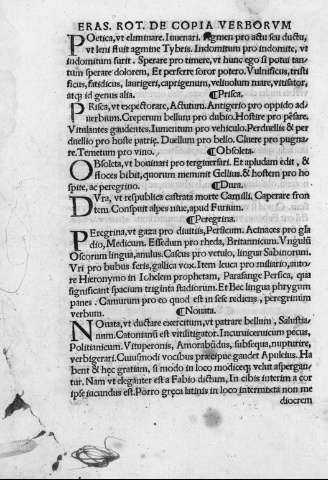 ERAS. ROT. DE COPIA VERBORVM
POetica, vt eliminare. Iuuenari. Agmen pro actu seu ductu,
vt leni fluit agmine Tybris. Indomitum pro indomite, vt
indomitum furit. Sperare pro timere, vt hunc ego si potui tan
tum sperare dolorem, Et perferre soror potero. Vulnificus, tristi
ficus, fatidicus, laurigeri, caprigenum, veliuolum mare, vitisator,
atq; id genus alia. ¶Prisca.
PRisca, vt expectorare, Actutum. Antigerio pro oppido ad
uerbium. Creperum bellum pro dubio. Hostire pro pēsare.
Vitulantes gaudentes. Iumentum pro vehiculo. Perduellis & per
duellio pro hoste patrię. Duellum pro bello. Ciuere pro pugna-
re. Temetum pro vino. ¶Obsoleta.
OBsoleta, vt bouinari pro tergiuersari. Et apludam edit, &
floces bibit, quorum meminit Gellius. & hostem pro ho
spite, ac peregrino. ¶Dura.
DVra, vt respublica castrata morte Camilli. Caperare fron
tem. Conspuit alpes niue, apud Furium.
¶Peregrina.
PEregrina, vt gaza pro diuitiis, Persicum. Acinaces pro gla
dio, Medicum. Essedum pro rheda, Britannicum. Vngulū
Oscorum lingua, anulus. Cascus pro vetulo, lingua Sabinorum.
Vri pro bubus feris, gallica vox. Item leuca pro miliario, auto
re Hieronymo in Iohelem prophetam, Parasange Persica, qua
significant spacium triginta stadiorum. Et Bec lingua phrygum
panes. Camurum pro eo quod est in sese rediens, peregrinum
verbum. ¶Nouata.
NOuata, vt ductare exercitum, vt patrare bellum, Salustia-
num. Catonianū est vitilitigator. Incuruiceruicum pecus,
Politianicum. Vituperonis, Amorabūdus, subseque, nupturire,
verbigerari. Cuiusmodi vocibus pręcipue gaudet Apuleius. Ha
bent & hęc gratiam, si modo in loco modiceq; velut aspergan-
tur. Nam vt eleganter est a Fabio dictum, In cibis interim acor
ipse iucundus est. Porro gręca latinis in loco intermixta non me
diocrem